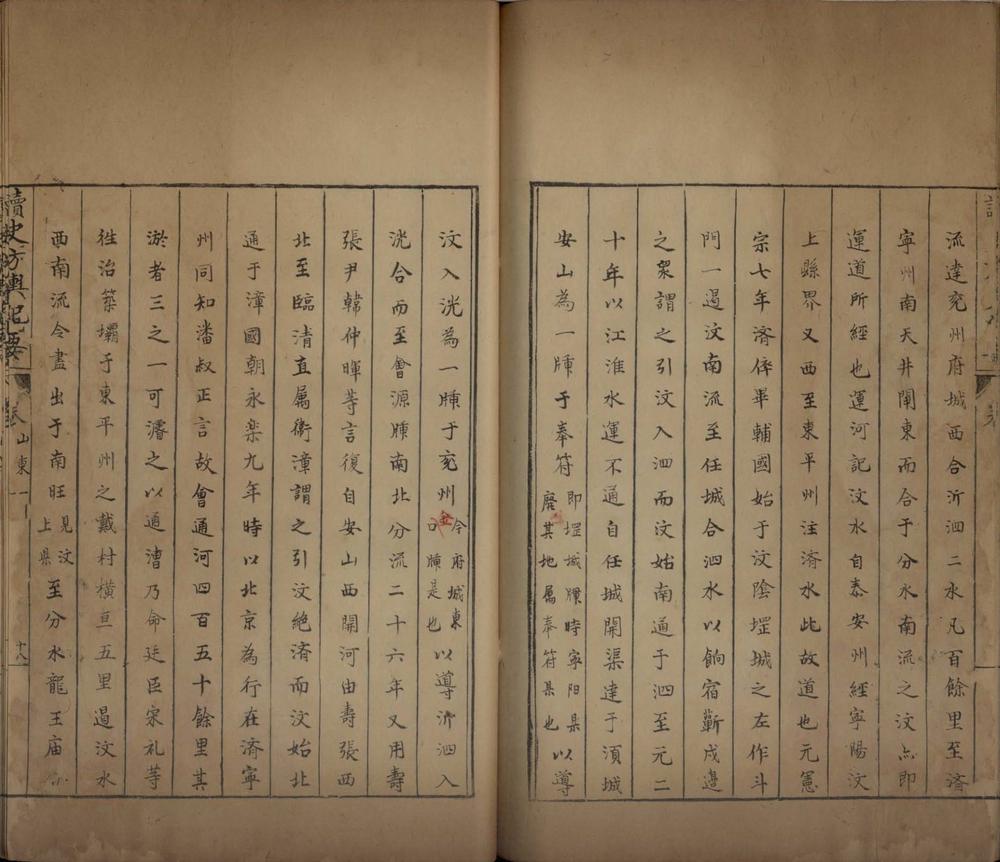 流達兖州府城西合沂泗二水凡百餘里至済
寧州南天井閘東而合于分水南流之汶亦即
運道所經也運河記汶水自泰安州經寧陽汶
上縣界又西至東平州注済水此故道也元憲
宗七年済倅畢輔國始于汶陰堽城之左作斗
門一遏汶南流至任城合泗水以餉宿蘄戍邊
之衆謂之引汶入泗而汶始南通于泗至元二
十年以江淮水運不通自任城開渠達于須城
安山為一牐于奉符
即堽城牐時寧陽县
廢其地属奉符县也
以導
汶入洸為一牐于兖州
今府城東
金口牐是也
以導沂泗入
洸合而至會源牐南北分流二十六年又用壽
張尹韓仲暉等言復自安山西開河由壽張西
北至臨清直属衛漳謂之引汶絶済而汶始北
通于漳國朝永楽九年時以北京為行在済寧
州同知潘叔正言故會通河四百五十餘里其
淤者三之一可濬之以通漕乃命廷臣宋礼等
徃治築壩于東平州之戴村横亘五里遏汶水
西南流令盡出于南旺
見汶
上县
至分水龍王庙
讀史方輿紀要
卷
山東一
十八